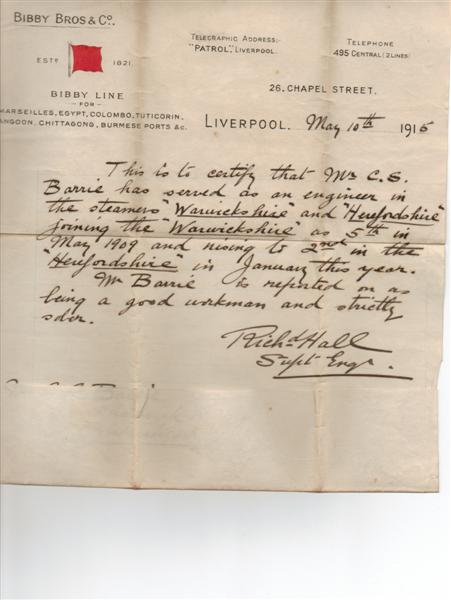 BIBBY BROS & Co.
ESTD 1821.
BIBBY LINE
- FOR -
MARSEILLES, EGYPT, COLOMBO, TUTICORIN,
RANGOON, CHITTAGONG, BURMESE PORTS &c.
TELEGRAPHIC ADDRESS:-
"PATROL", LIVERPOOL.
TELEPHONE
495 CENTRAL (2 LINES)
26, CHAPEL STREET,
LIVERPOOL. May 10th 1915
This is to certify that Mr C. S.
Barrie has served as an engineer in
the steamers "Warwickshire" and "Herefordshire"
joining the "Warwickshire" as 5th in
May 1909 and rising to 2nd in the
"Herefordshire" in January this year.
Mr Barrie is reported on as
being a good workman and strictly
sober.
Richd Hall
Supt Engr.